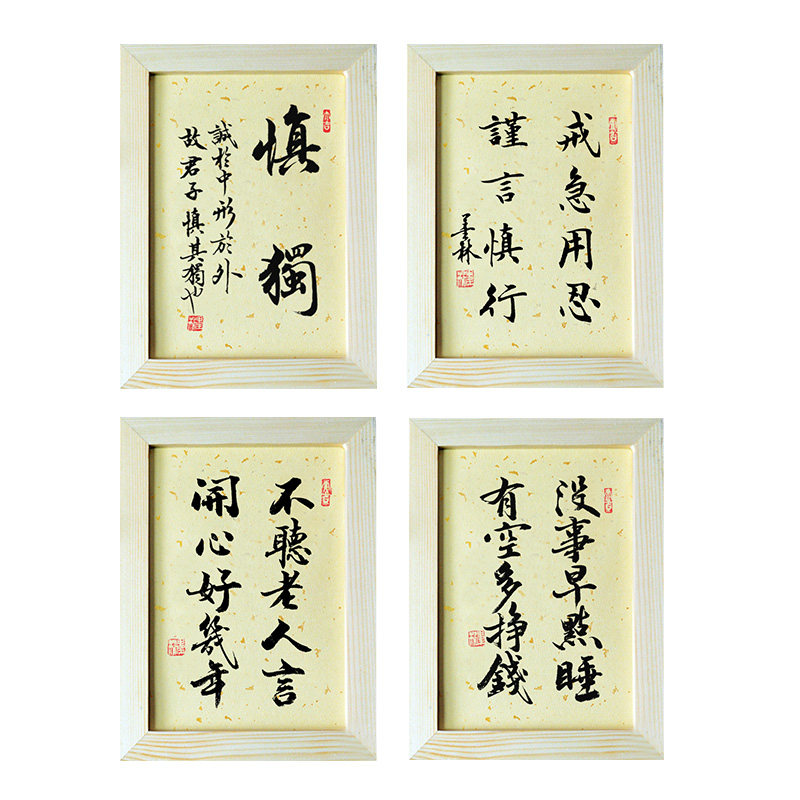 慎獨
誠於中形於外
故君子慎其獨也
戒急用忍
謹言慎行
墨林
不聽老人言
開心好幾年
没事早點睡
有空多掙錢